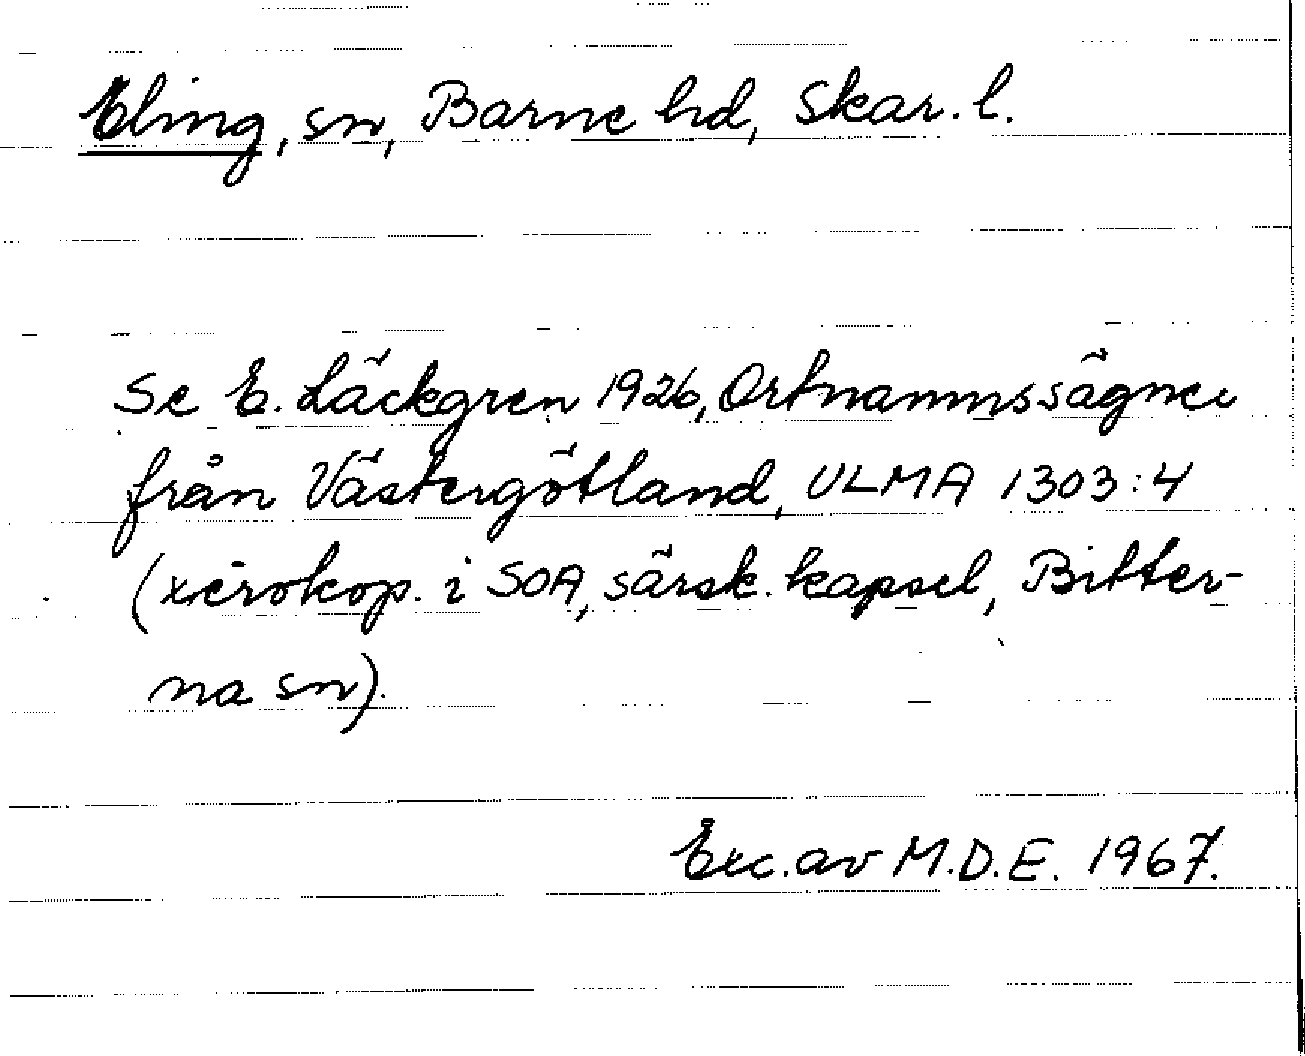 Eling, sn, Barne hd, Skar. l.
Se E. Läckgren 1926, Ortnamnssägner
från Västergötland, ULMA 1303:4
(xerokop. i SOA, särsk. kapsel, Bitter-
na sn).
Exc. av M.D.E. 1967.